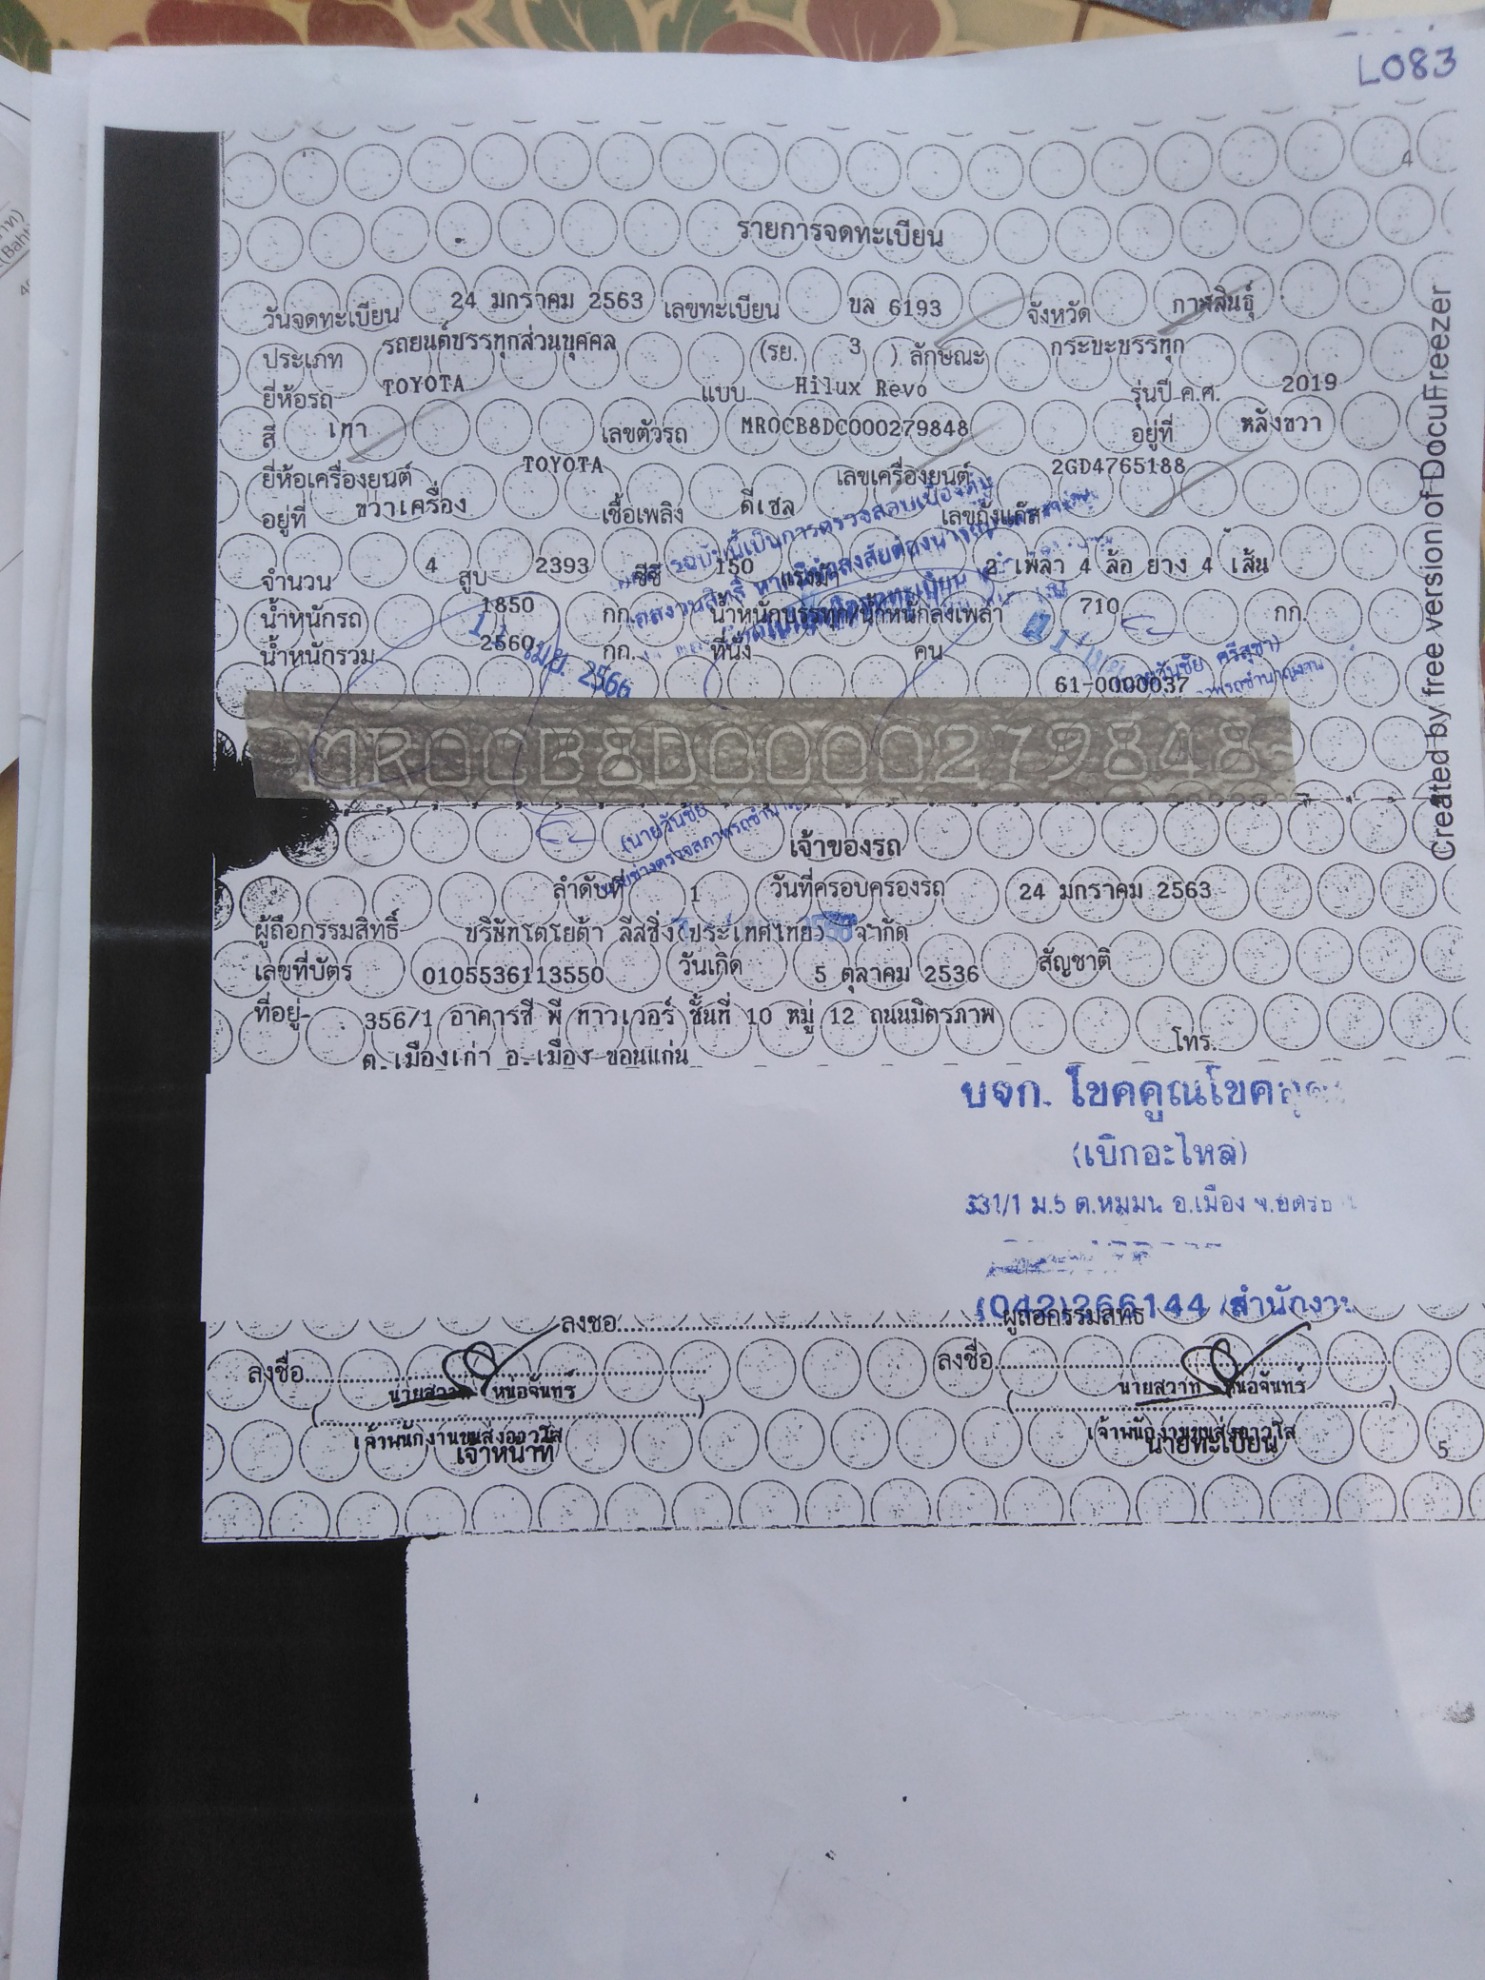 L083
4
รายการจดทะเบียน
วันจดทะเบียน 24 มกราคม 2563 เลขทะเบียน ขล 6193 จังหวัด กาฬสินธุ์
ประเภท รถยนต์บรรทุกส่วนบุคคล (รย. 3 ) ลักษณะ กระบะบรรทุก
ยี่ห้อรถ TOYOTA แบบ Hilux Revo รุ่นปี ค.ศ. 2019
สี เทา เลขตัวรถ MR0CB8DC000279848 อยู่ที่ หลังขวา
ยี่ห้อเครื่องยนต์ TOYOTA เลขเครื่องยนต์ 2GD4765188
อยู่ที่ ขวาเครื่อง เชื้อเพลิง ดีเซล เลขถังแก๊ส
จำนวน 4 สูบ 2393 ซีซี 150 แรงม้า 2 เพลา 4 ล้อ ยาง 4 เส้น
น้ำหนักรถ 1850 กก. น้ำหนักบรรทุก/น้ำหนักลงเพลา 710 กก.
น้ำหนักรวม 2560 กก. ที่นั่ง คน
เม.ย. 2566
61-0000037
MR0CB8DC000279848
(นายวันชัย
เจ้าของรถ
ลำดับที่ 1 วันที่ครอบครองรถ 24 มกราคม 2563
ผู้ถือกรรมสิทธิ์ บริษัทโตโยต้า ลีสซิ่ง(ประเทศไทย) จำกัด
เลขที่บัตร 0105536113550 วันเกิด 5 ตุลาคม 2536 สัญชาติ
ที่อยู่ 356/1 อาคารซี พี ทาวเวอร์ ชั้นที่ 10 หมู่ 12 ถนนมิตรภาพ
ต.เมืองเก่า อ.เมือง ขอนแก่น โทร.
บจก. โชคคูณโชค
(เบิกอะไหล่)
331/1 ม.5 ต.หมูม่น อ.เมือง
(042)266144
ลงชื่อ ผู้ถือกรรมสิทธิ์
ลงชื่อ ลงชื่อ
นายสวาท หน่อจันทร์ นายสวาท หน่อจันทร์
เจ้าพนักงานขนส่งอาวุโส เจ้าพนักงานขนส่งอาวุโส
เจ้าหน้าที่ นายทะเบียน
5
Created by free version of DocuFreezer